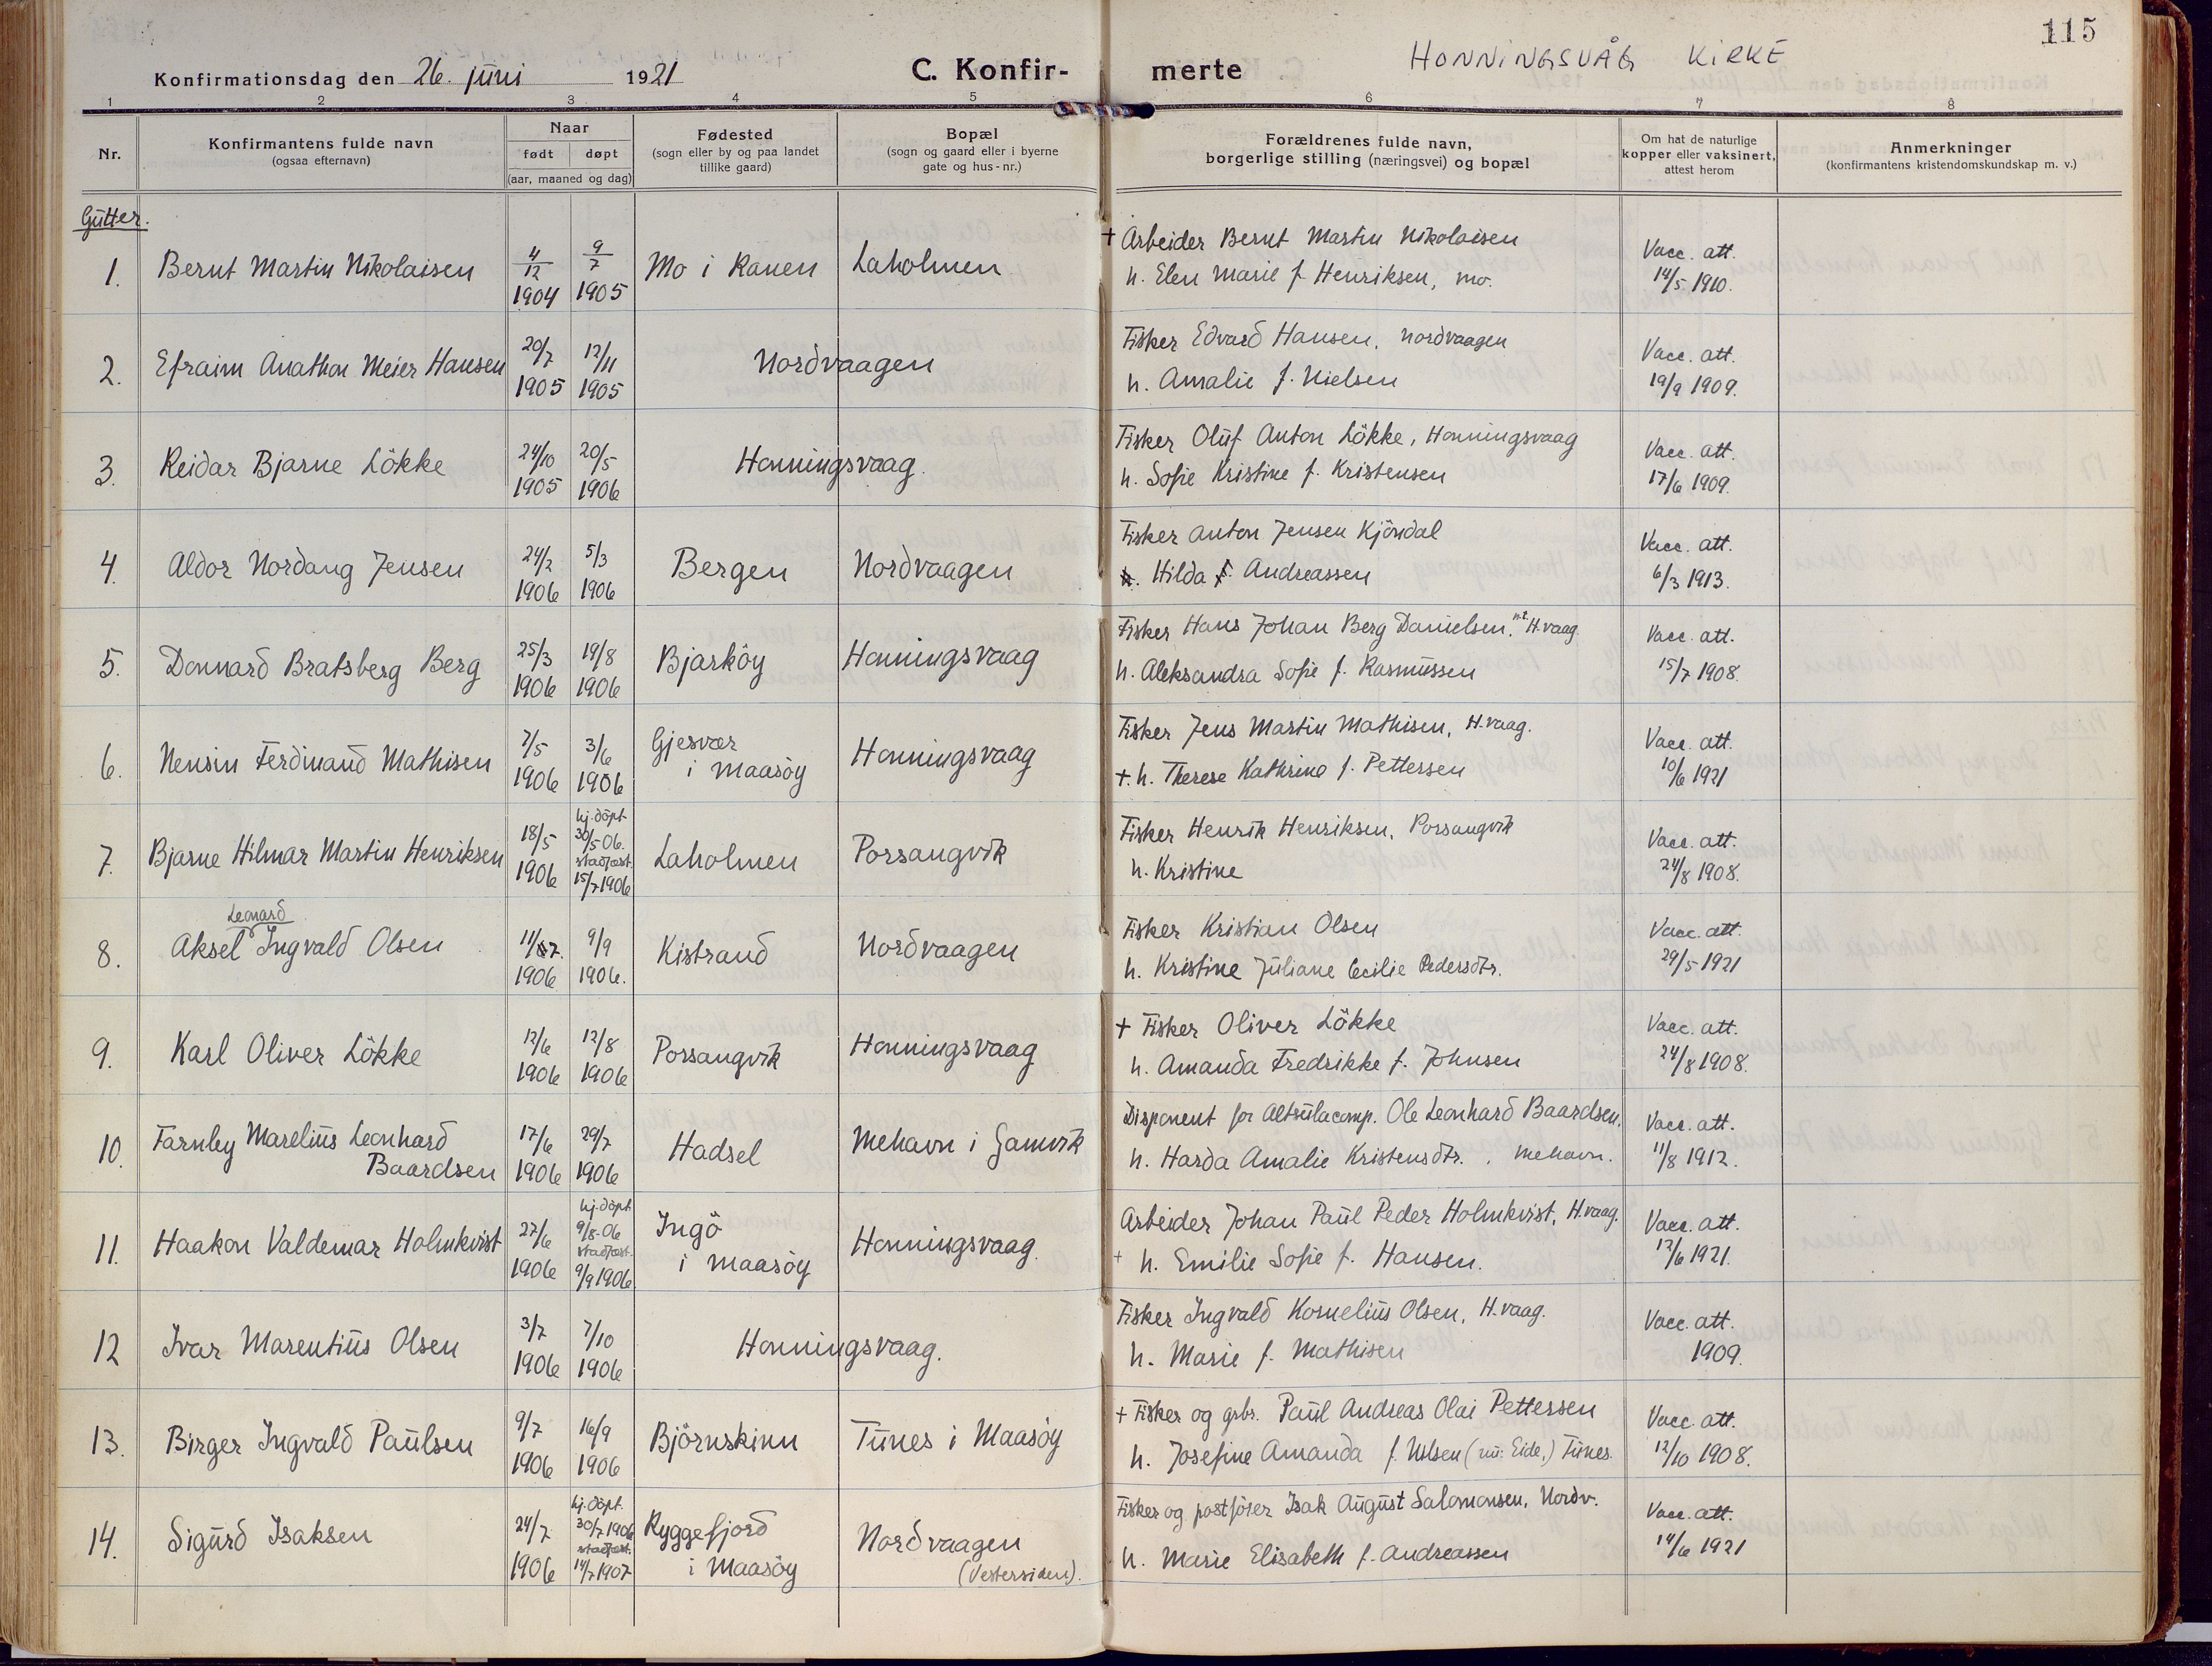 115
HONNINGSVÅG KIRKE
Konfirmationsdag den 26. juni 1921
C. Konfir- merte
1 2 3 4 5 6 7 8
Nr.
Konfirmantens fulde navn
(ogsaa efternavn)
Naar
født døpt
(aar, maaned og dag)
Fødested
(sogn eller by og paa landet
tillike gaard)
Bopæl
(sogn og gaard eller i byerne
gate og hus-nr.)
Forældrenes fulde navn,
borgerlige stilling (næringsvei) og bopæl
Om hat de naturlige
kopper eller vaksinert,
attest herom
Anmerkninger
(konfirmantens kristendomskundskap m. v.)
Gutter.
1. Bernt Martin Nikolaisen 4/12 1904 9/7 1905 Mo i Ranen Laholmen
+ Arbeider Bernt Martin Nikolaisen
h. Elen Marie f. Henriksen, mo.
Vacc. att.
14/5 1910.
2. Efraim Anathon Meier Hansen 20/7 1905 12/11 1905 Nordvaagen
Fisker Edvard Hansen, Nordvaagen
h. Amalie f. Nielsen
Vacc. att.
19/9 1909.
3. Reidar Bjarne Lökke 24/10 1905 20/5 1906 Honningsvaag.
Fisker Oluf Anton Lökke, Honningsvaag
h. Sofie Kristine f. Kristensen
Vacc. att.
17/6 1909.
4. Aldor Nordang Jensen 24/2 1906 5/3 1906 Bergen Nordvaagen
Fisker Anton Jensen Kjöndal
h. Hilda f. Andreassen
Vacc. att.
6/3 1913.
5. Donnard Bratsberg Berg 25/3 1906 19/8 1906 Bjarköy Honningsvaag
Fisker Hans Johan Berg Danielsen, H.vaag.
h. Aleksandra Sofie f. Rasmussen
Vacc. att.
15/7 1908.
6. Nensin Ferdinand Mathisen 7/5 1906 3/6 1906 Gjesvær
i Maasöy Honningsvaag
Fisker Jens Martin Mathisen, H.vaag.
+. h. Therese Kathrine f. Pettersen
Vacc. att.
10/6 1921
7. Bjarne Hilmar Martin Henriksen 18/5 1906 hj.döpt
30/5 06.
stadfæst.
15/7 1906 Laholmen Porsangvik
Fisker Henrik Henriksen, Porsangvik
h. Kristine
Vacc. att.
24/8 1908.
Leonard
8. Aksel Ingvald Olsen 11/7. 1906 9/9 1906. Kistrand Nordvaagen
Fisker Kristian Olsen
h. Kristine Juliane Cecilie Pedersdtr.
Vacc. att.
29/5 1921
9. Karl Oliver Lökke 12/6 1906 12/8 1906 Porsangvik Honningsvaag
+ Fisker Oliver Lökke
h. Amanda Fredrikke f. Johnsen
Vacc. att.
24/8 1908.
10. Farnley Marelius Leonhard
Baardsen 17/6 1906 29/7 1906 Hadsel Mehavn i Gamvik
Disponent for Altsulacomp. Ole Leonhard Baardsen,
h. Harda Amalie Kristensdtr., Mehavn.
Vacc. att.
11/8 1912.
11. Haakon Valdemar Holmkvist 27/6 1906 hj.döpt
9/8-06
stadfæst.
9/9 1906 Ingö
i Maasöy Honningsvaag.
Arbeider Johan Paul Peder Holmkvist, H.vaag.
+ h. Emilie Sofie f. Hansen.
Vacc. att.
12/6 1921.
12 Ivar Marentius Olsen 3/7 1906 7/10 1906 Honningsvaag.
Fisker Ingvald Kornelius Olsen, H.vaag.
h. Marie f. Mathisen
Vacc. att.
1909.
13. Birger Ingvald Paulsen 9/7 1906 16/9 1906 Björnskinn Tunes i Maasöy
+ Fisker og grbr. Paul Andreas Olai Pettersen
h. Josefine Amanda f. Nilsen (nu: Eide,) Tunes.
Vacc. att.
12/10 1908.
14. Sigurd Isaksen 24/7 1906 hj.döpt.
30/7 1906
stadfæst.
14/7 1907 Ryggefjord
i Maasöy Nordvaagen
(Vestersiden).
Fisker og postförer Isak August Salomonsen, Nordv.
h. Marie Elisabeth f. Andreassen
Vacc. att.
14/6 1921